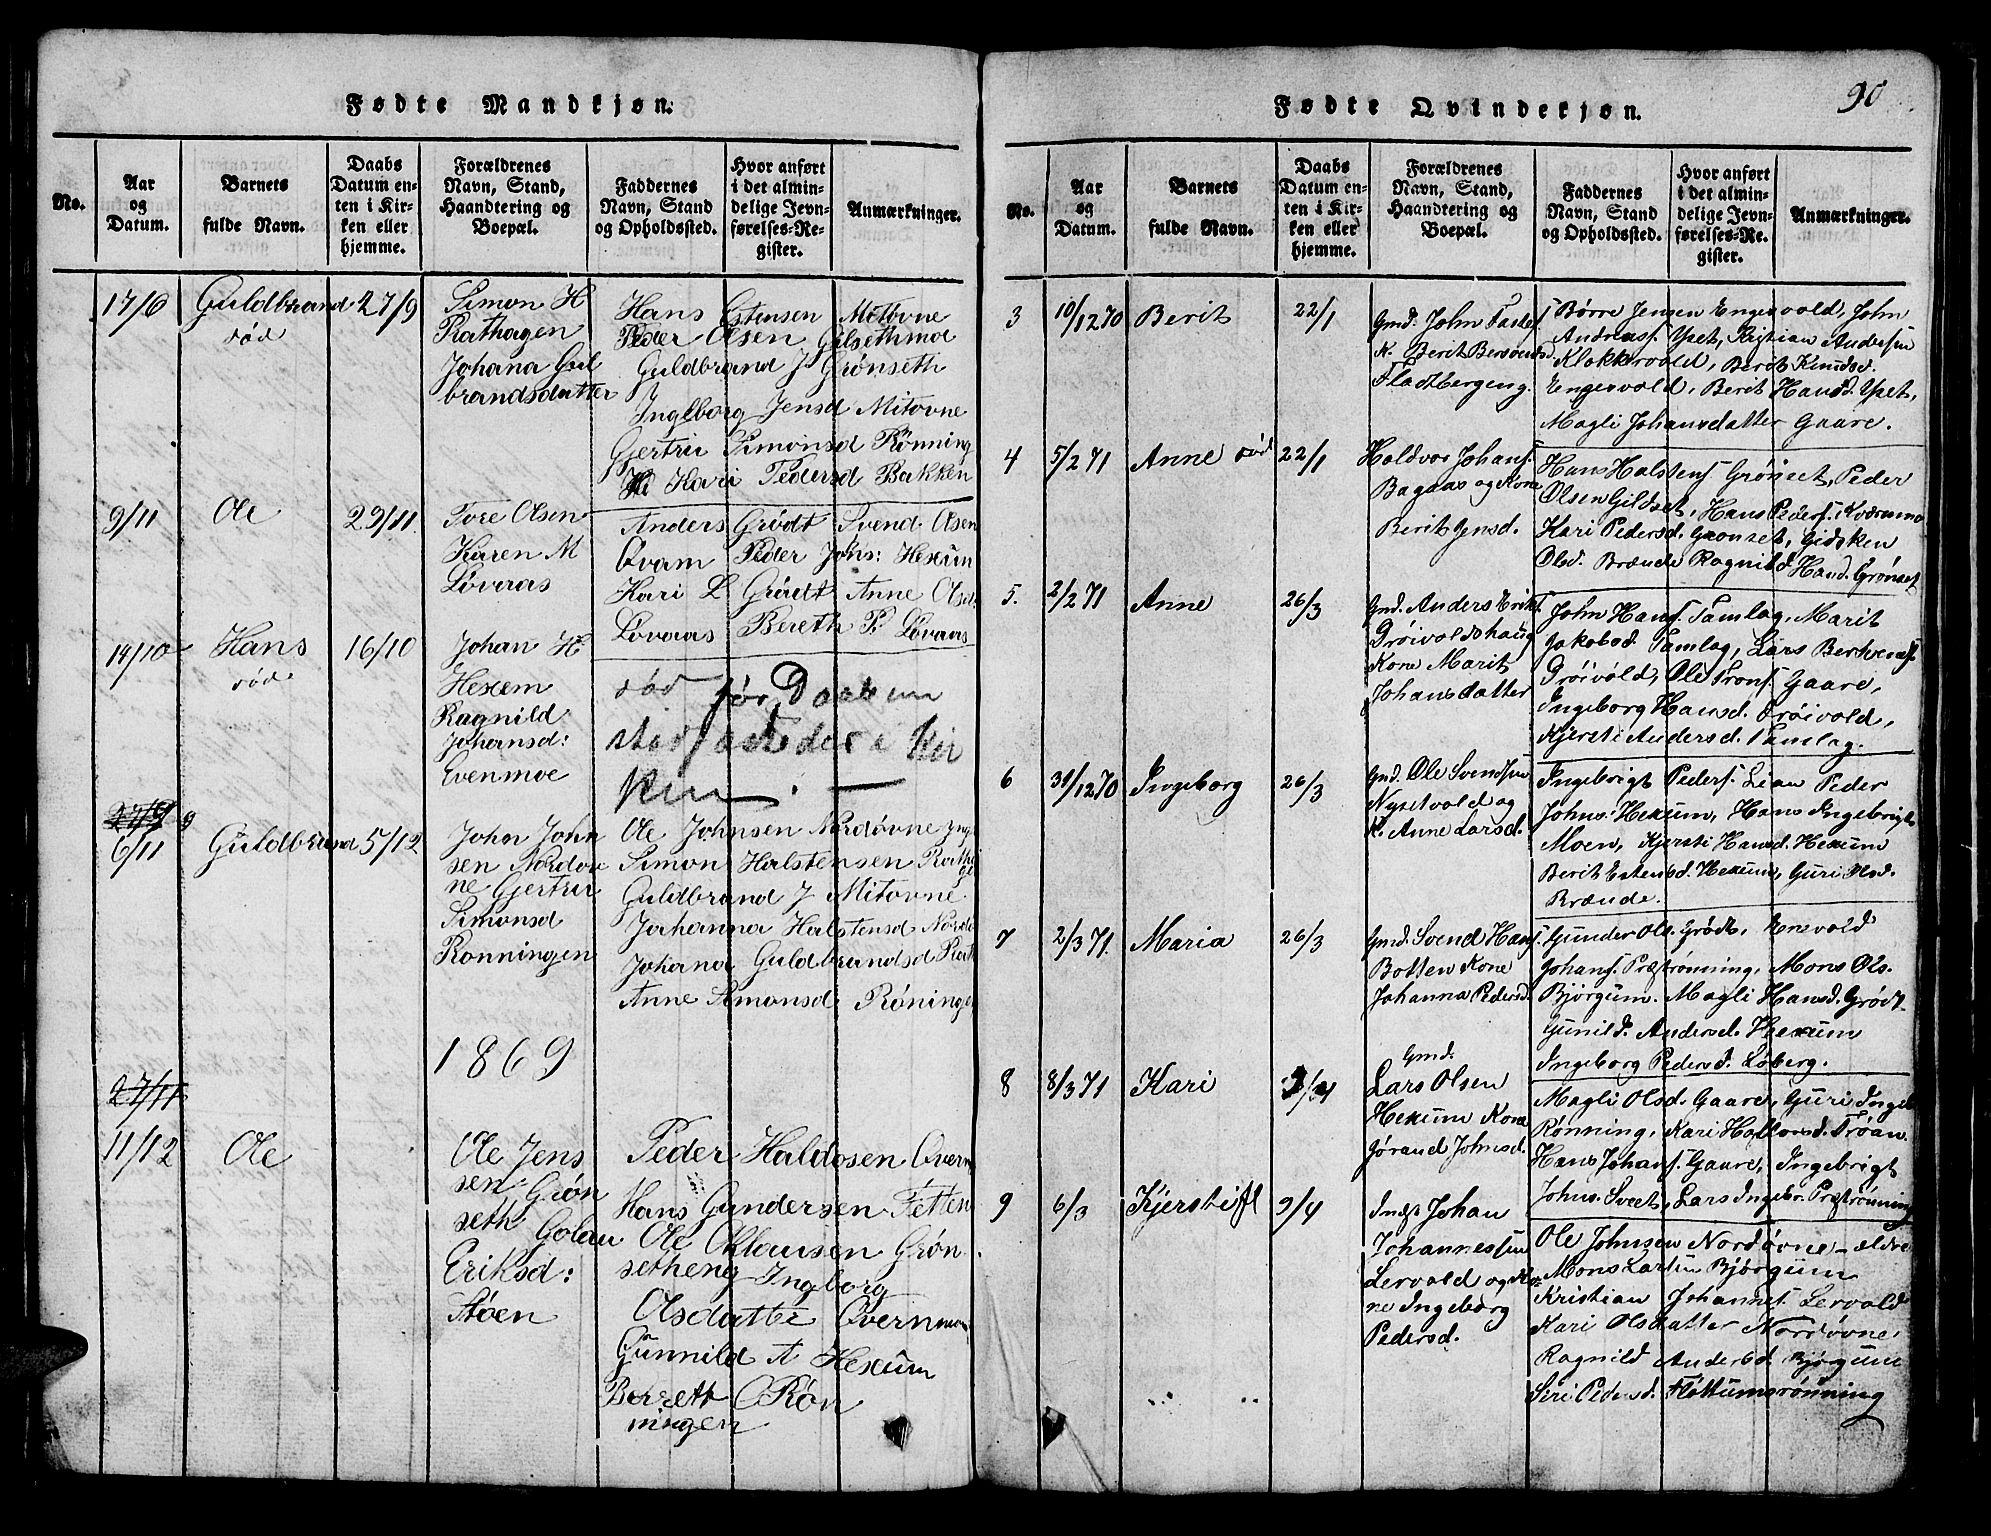 Fødte Mandkjøn.
No.
Aar
og
Datum.
Barnets
fulde Navn.
Daabs
Datum en-
ten i Kir-
ken eller
hjemme.
Forældrenes
Navn, Stand,
Haandtering og
Boepæl.
Faddernes
Navn, Stand
og Opholdssted.
Hvor anført
i det almin-
delige Jevn-
førelses-Re-
gister.
Anmærkninger.
17/6
Guldbrand
død
27/9
Simon H
Rathagen
Johana Gul
brandsdatter
Hans Estensen Mitovne
Peder Olsen Gilsethmoe
Guldbrand J Grønseth
Ingeborg Jensd Mitovne
Gertru Simonsd Rønning
Kari Pedersd Bakken
9/11
Ole
29/11
Tore Olsen
Karen M
Løvaas
Anders Grødt Svend Olsen
Qvam Peder Johs: Hexum
Kari L Grødt Anne Olsd
Løvaas Bereth P. Løvaas
14/10
Hans
død
16/10
Johan H
Hexem
Ragnild
Johansd:
Evenmoe
død før Daaben
stadfæstedes i Kir
ken. —
6/11
Guldbrand
5/12
John John
sen Nordov
ne Gjertru
Simonsd
Ronningen
Ole Johnsen Nordøvne yng
Simon Halstensen Rathe
Guldbrand J Mitovne
Johanna Halstensd Nordo
Johana Guldbrandsd Rat
Anne Simonsd Røningen
1869
27/11
11/12
Ole
Ole Jens
sen Grøn
seth Golau
Eriksd:
Støen
Peder Haldosen Qvern
Hans Gundersen Fetten
Ole Oklausen Grøn
setheng Ingborg
Olsdatter Qvernmo
Gunnild A Hexum
Berrett O Røn
ningen
Fødte Qvindekjøn.
90
No.
Aar
og
Datum.
Barnets
fulde Navn.
Daabs
Datum en-
ten i Kir-
ken eller
hjemme.
Forældrenes
Navn, Stand,
Haandtering og
Boepæl.
Faddernes
Navn, Stand
og Opholdssted.
Hvor anført
i det almin-
delige Jevn-
førelses-Re-
gister.
Anmærkninger.
3
10/12 70
Berit
22/1
Gmd. John
K. Berit Bersvends
Fladbergeng.
Børre Jensen Engesvold, John
Andreas. Ypet, Kristian Andersen
Klokkervold, Berit Knudsd.
Engesvold, Berit Hansd. Ypet,
Magli Johansdatter Gaare.
4
5/2 71
Anne død
22/1
Haldvor Johans.
Bagaas og Kone
Berit Jensd.
Hans Halstens. Grønset, Peder
Olsen Gildset, Hans Peders. Kværnmo
Kari Pedersd. Gronset, Gidsken
Olsd. Brænde Ragnild Hansd. Grønset
5.
2/2 71
Anne
26/3
Gmd. Anders Eriks.
Drøivoldshaug
Kone Marit
Johansdatter
John Hans. Samlag, Marit
Jakobsd. Samlag, Lars
Drøivold, Ole Trons. Gaare,
Ingeborg Hansd. Drøivold,
Kjersti Andersd. Samlag.
6
31/12 70
Ingeborg
26/3
Gmd. Ole Svendsen
Nysetvold og
K. Anne Larsd.
Ingebrigt Peders. Lian Peder
Johns. Hexum, Hans Ingebrigts
Moen, Kjersti Hansd. Hexum
Berit Estensd. Hexum, Guri Olsd.
Brænde.
7
2/3 71.
Maria
26/3
Gmd. Svend Hans.
Botten Kone
Johanna Pedersd.
Gunder Ols. Grødt, Enevold
Johans. Præstrønning, Mons Ols.
Bjørgum. Magli Hansd. Grødt.
Gunild Andersd. Hexum
Ingeborg Pedersd. Løberg.
8
8/3 71
Kari
Gmd.
Lars Olsen
Hexum Kone
Jørand Johnsd.
Magli Olsd. Gaare, Guri Ingeb
Rønning, Kari Hallorsd. Trøan
Hans Johans. Gaare, Ingebrigt
Johns. Sveet, Lars Ingebr. Præstrønning
9
6/3
Kjersti
9/4
Indst Johan
Johannessen
Lervold og Ko
ne Ingeborg
Pedersd.
Ole Johnsen Nordøvne ældre
Mons Larsen Bjørgum
Kristian Johannes. Lervold
Kari Olsdatter Nordøvne,
Ragnild Andersd. Bjørgum
Siri Pedersd. Fløttumsrønning